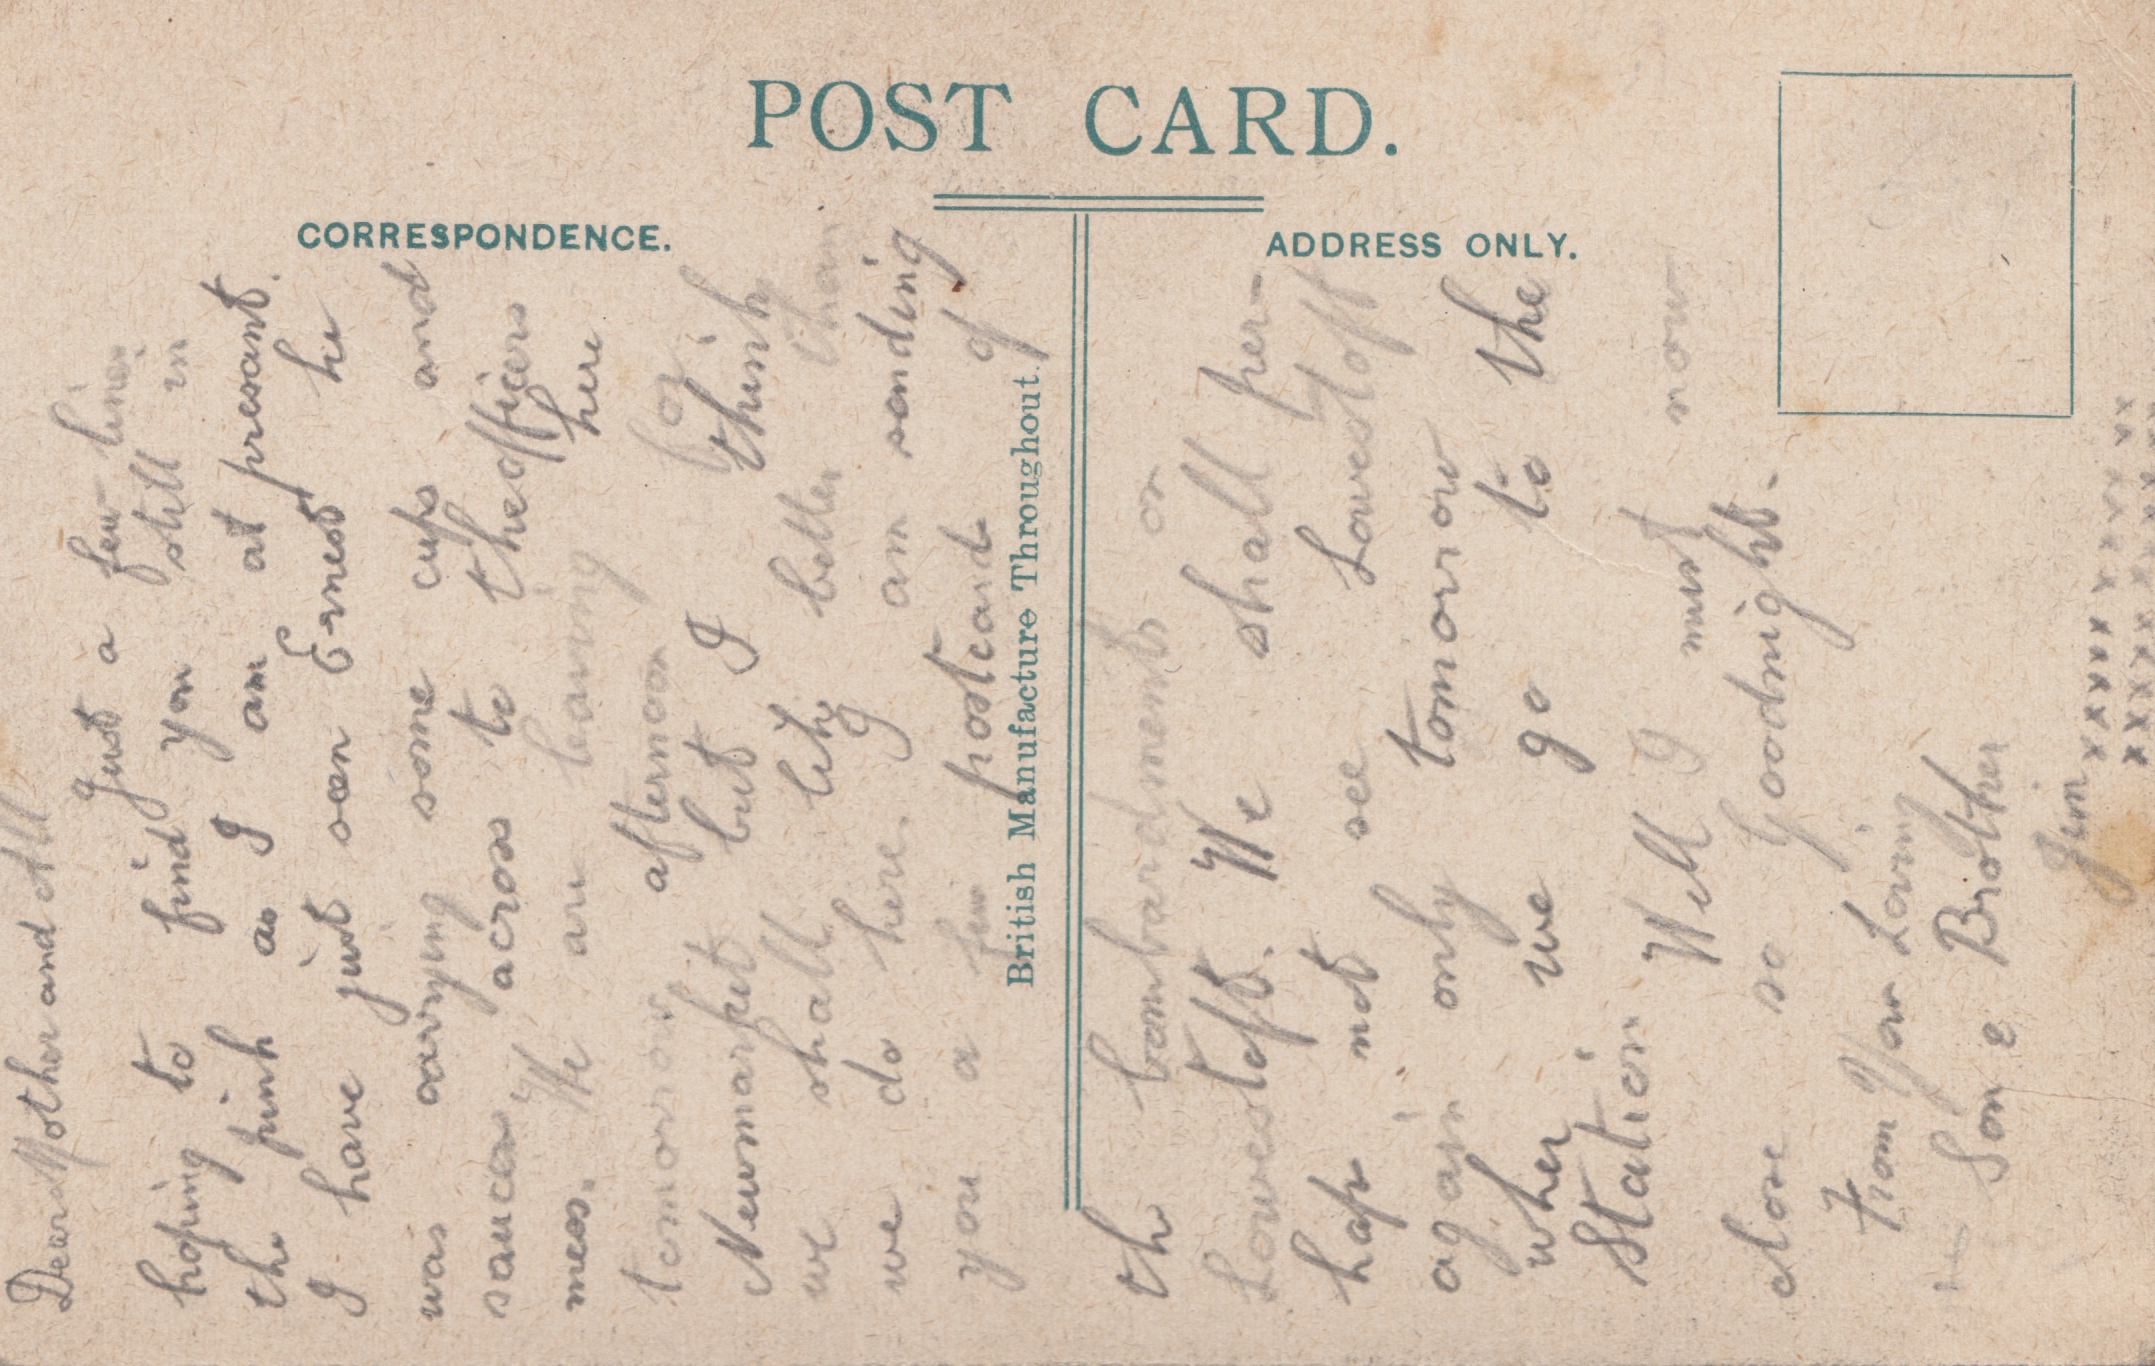 POST CARD.
CORRESPONDENCE.
ADDRESS ONLY.
British Manufacture Throughout.
Dear Mother and All
Just a few lines
hoping to find you still in
the pink as I am at presant.
I have just seen Ernest he
was carrying some cups and
saucers across to the officers
mess. We are leaving here
tomorrow afternoon for
Newmarket but I think
we shall like better than
we do here. I am sending
you a few postcard of
the bombardments on
Lowestoft. We shall per-
hap not see Lowestoft
again only tomorrow
when we go to the
Station Well I must now
close so Goodnight.
From Your Loving
Son & Brother
Jim
x x x x x x x x x
x x x x x x x x x